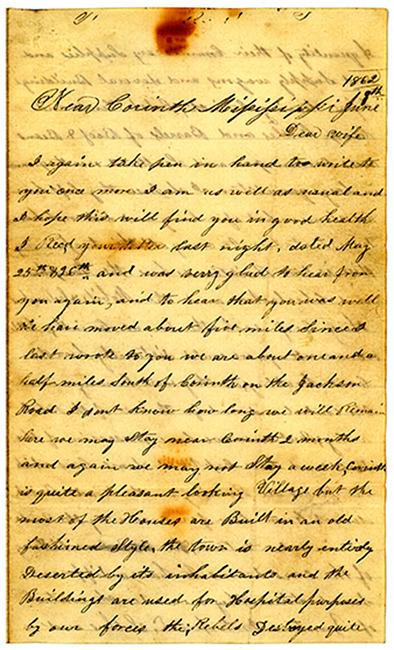 1862
Near Corinth Mississippi June 8th
Dear wife
I again take pen in hand to write to
you once more I am as well as usual and
I hope this will find you in good health
I Recd your letter last night, dated May
25th & 26th and was verry glad to hear from
you again, and to hear that you was well
We have moved about five miles Since I
last wrote to you we are about one and a
half miles South of Corinth on the Jackson
Road I dont know how long we will Remain
here we may Stay near Corinth 2 months
and again we may not Stay a week, Corinth
is quite a pleasant looking Village but the
most of the Houses are Built in an old
fashioned Style, the town is nearly entirely
Deserted by its inhabitants and the
Buildings are used for Hospital purposes
by our forces the Rebels Destroyed quite